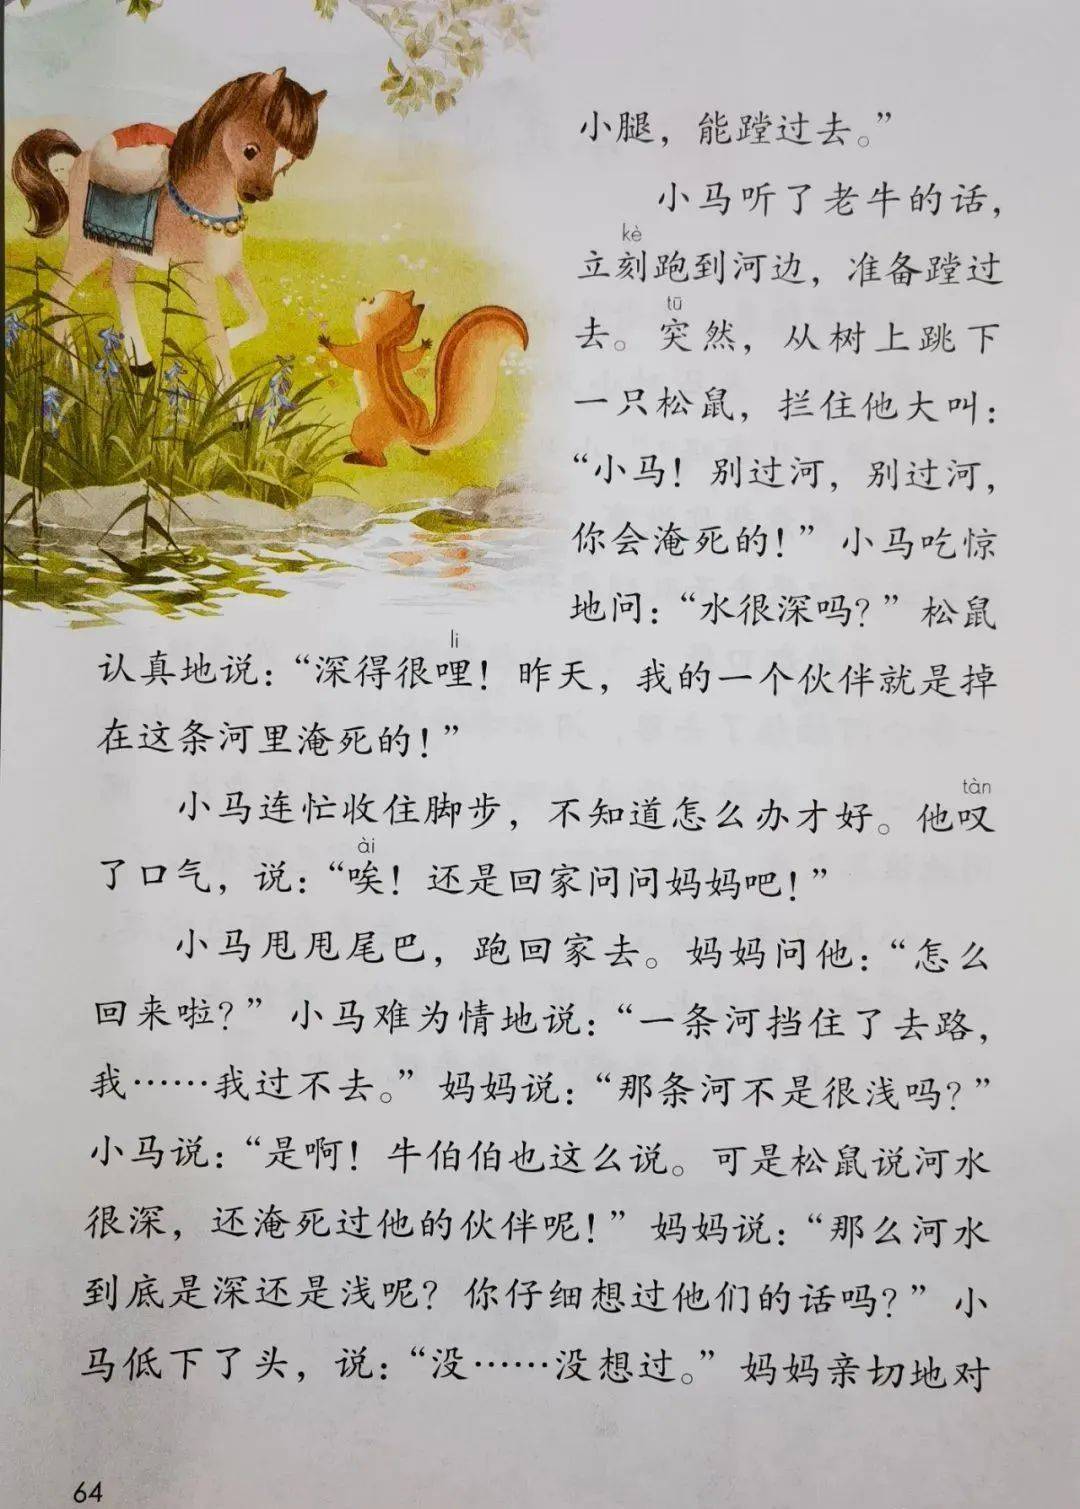 小腿，能蹚过去。”
小马听了老牛的话，
kè
立刻跑到河边，准备蹚过
tū
去。突然，从树上跳下
一只松鼠，拦住他大叫：
“小马！别过河，别过河，
你会淹死的！”小马吃惊
地问：“水很深吗？”松鼠
li
认真地说：“深得很哩！昨天，我的一个伙伴就是掉
在这条河里淹死的！”
tàn
小马连忙收住脚步，不知道怎么办才好。他叹
ài
了口气，说：“唉！还是回家问问妈妈吧！”
小马甩甩尾巴，跑回家去。妈妈问他：“怎么
回来啦？”小马难为情地说：“一条河挡住了去路，
我……我过不去。”妈妈说：“那条河不是很浅吗？”
小马说：“是啊！牛伯伯也这么说。可是松鼠说河水
很深，还淹死过他的伙伴呢！”妈妈说：“那么河水
到底是深还是浅呢？你仔细想过他们的话吗？”小
马低下了头，说：“没……没想过。”妈妈亲切地对
64